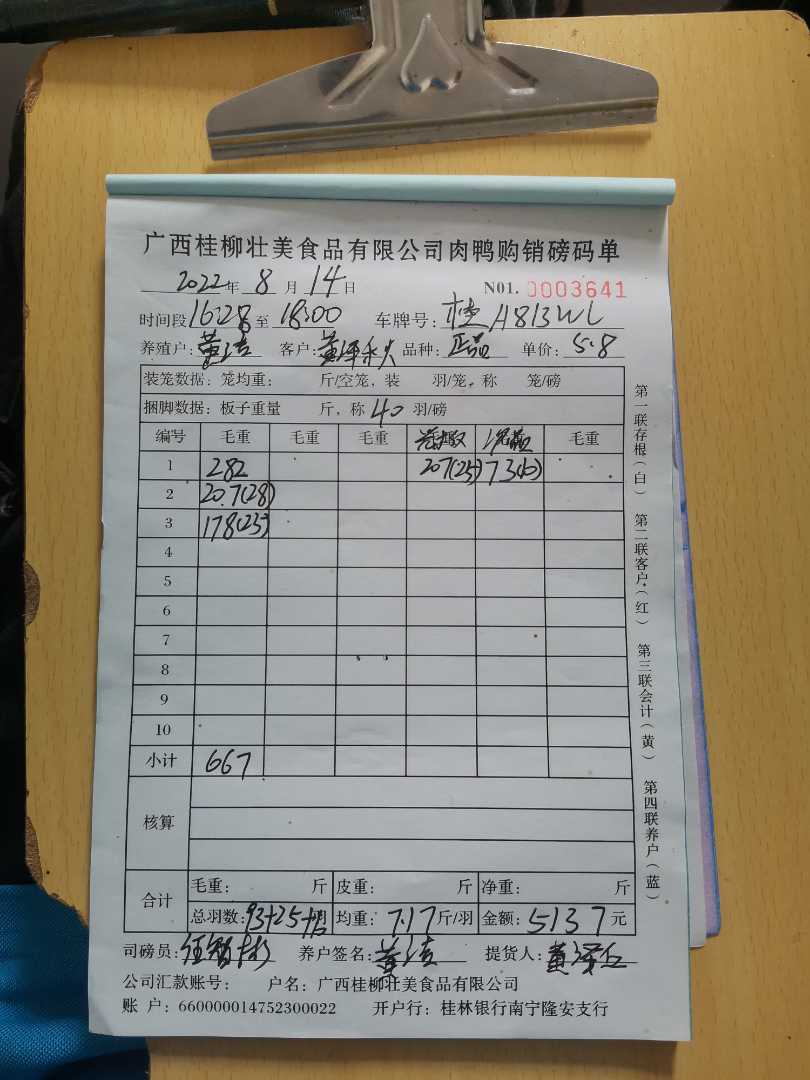 广西桂柳壮美食品有限公司肉鸭购销磅码单
2022年 8 月 14 日 N01. 0003641
时间段 16:28 至 18:00 车牌号: 桂A813WL
养殖户: 黄洁 客户: 黄 品种: 正品 单价: 5.8
装笼数据: 笼均重: 斤/空笼, 装 羽/笼, 称 笼/磅
捆脚数据: 板子重量 斤, 称 40 羽/磅
编号 毛重 毛重 毛重 毛重
1 282 207(25) 73(10)
2 207(28)
3 178(25)
4
5
6
7
8
9
10
小计 667
核算
合计 毛重: 斤 皮重: 斤 净重: 斤
总羽数: 93+25+ 均重: 7.17 斤/羽 金额: 5137 元
司磅员: 养户签名: 黄洁 提货人: 黄泽
公司汇款账号: 户名: 广西桂柳壮美食品有限公司
账 户: 660000014752300022 开户行: 桂林银行南宁隆安支行
第一联存根(白) 第二联客户(红) 第三联会计(黄) 第四联养户(蓝)